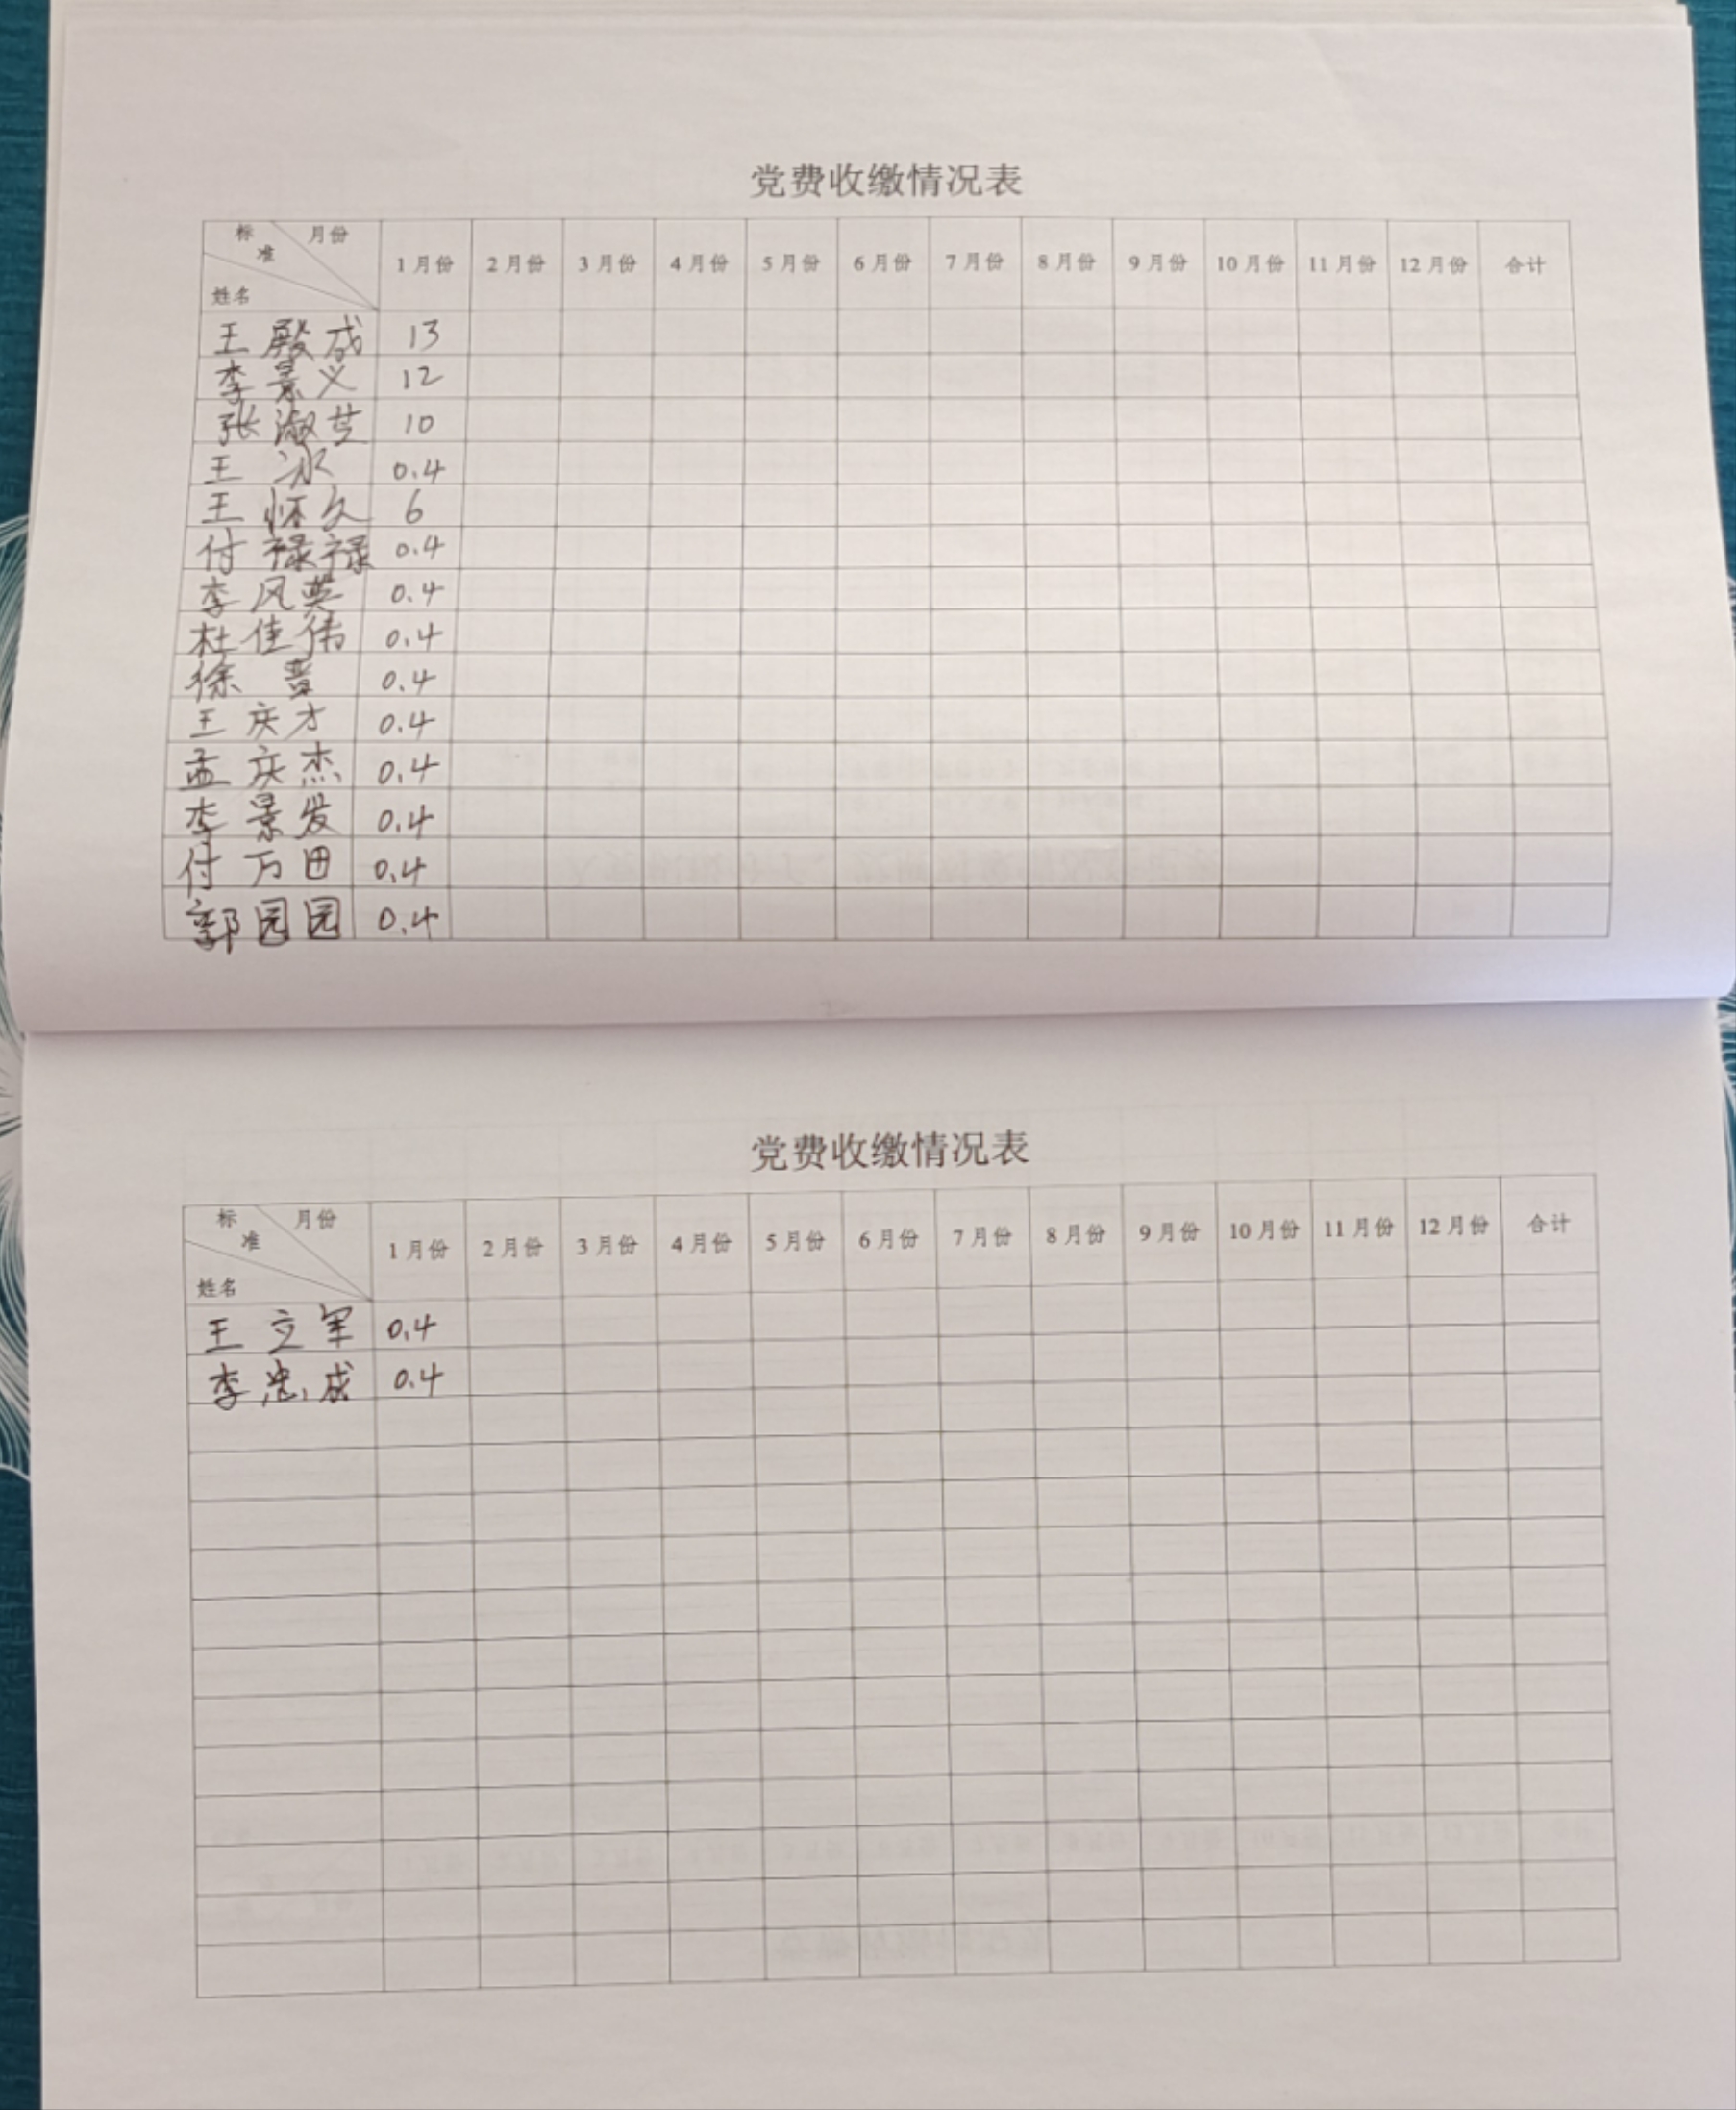 党费收缴情况表
标准 月份 姓名 1月份 2月份 3月份 4月份 5月份 6月份 7月份 8月份 9月份 10月份 11月份 12月份 合计
王殿成 13
李景义 12
张淑芝 10
王冰 0.4
王怀久 6
付禄禄 0.4
李风英 0.4
杜佳伟 0.4
徐晋 0.4
王庆才 0.4
孟庆杰 0.4
李景发 0.4
付万田 0.4
郭园园 0.4
党费收缴情况表
标准 月份 姓名 1月份 2月份 3月份 4月份 5月份 6月份 7月份 8月份 9月份 10月份 11月份 12月份 合计
王立军 0.4
李忠成 0.4